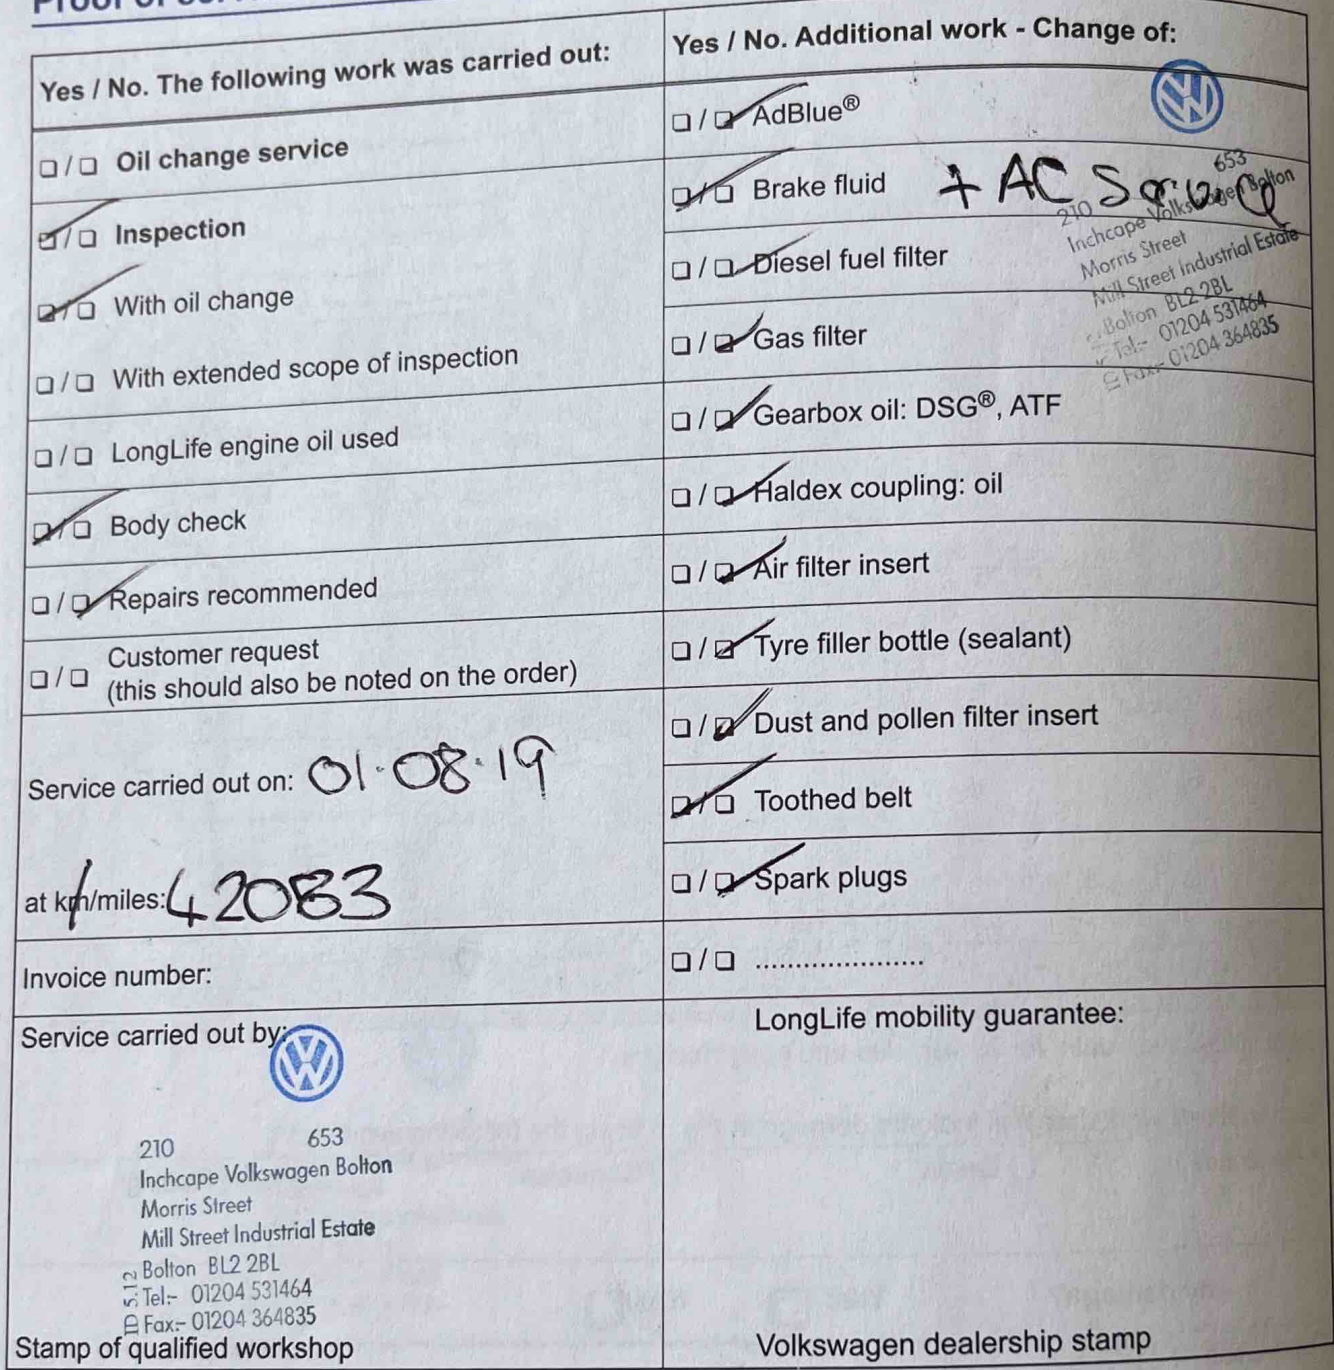 Yes / No. The following work was carried out:
☐ / ☐ Oil change service
☑ / ☐ Inspection
☑ / ☐ With oil change
☐ / ☐ With extended scope of inspection
☐ / ☐ LongLife engine oil used
☑ / ☐ Body check
☐ / ☑ Repairs recommended
☐ / ☐ Customer request
(this should also be noted on the order)
Service carried out on: 01.08.19
at km/miles: 42083
Invoice number:
Service carried out by:
210 653
Inchcape Volkswagen Bolton
Morris Street
Mill Street Industrial Estate
Bolton BL2 2BL
Tel:- 01204 531464
Fax:- 01204 364835
Stamp of qualified workshop
Yes / No. Additional work - Change of:
☐ / ☑ AdBlue®
☑ / ☐ Brake fluid + AC Service
210 653
Inchcape Volkswagen Bolton
Morris Street
Mill Street Industrial Estate
Bolton BL2 2BL
Tel:- 01204 531464
Fax:- 01204 364835
☐ / ☑ Diesel fuel filter
☐ / ☑ Gas filter
☐ / ☑ Gearbox oil: DSG®, ATF
☐ / ☑ Haldex coupling: oil
☐ / ☑ Air filter insert
☐ / ☑ Tyre filler bottle (sealant)
☐ / ☑ Dust and pollen filter insert
☑ / ☐ Toothed belt
☐ / ☑ Spark plugs
☐ / ☐ ......................
LongLife mobility guarantee:
Volkswagen dealership stamp